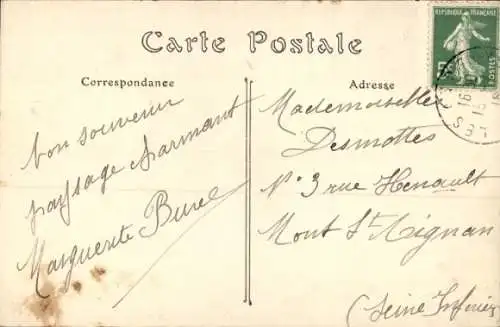 Carte Postale
Correspondance
Adresse
RÉPUBLIQUE FRANÇAISE
5c
POSTES
bon souvenir
paysage charmant
Marguerite Burel
Mademoiselles
Desmottes
N° 3 rue Henault
Mont St Aignan
(Seine Inférieu